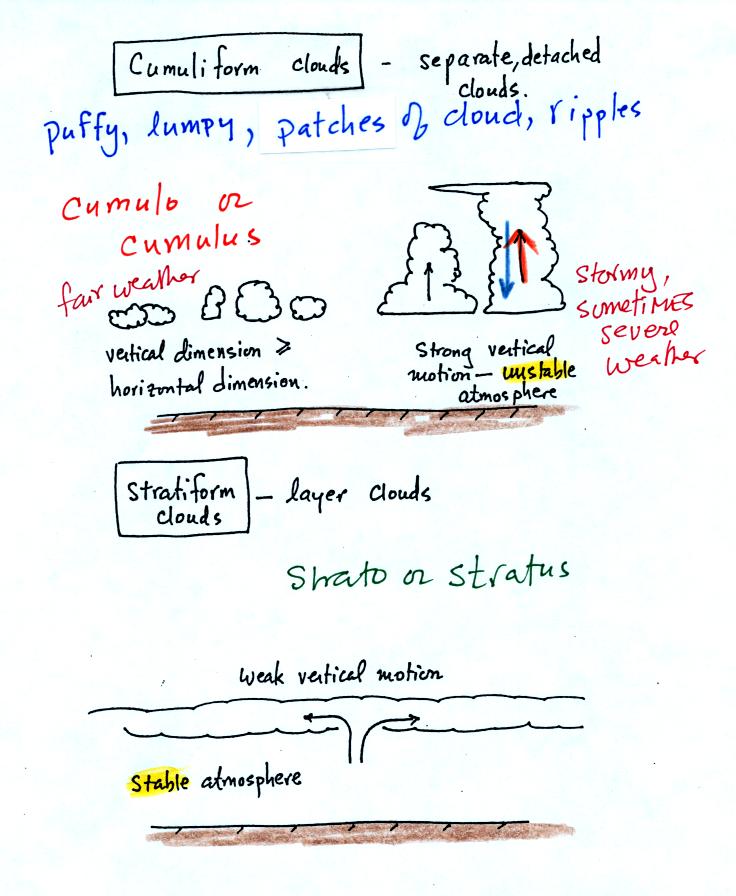 Cumuliform clouds - separate, detached
clouds.
puffy, lumpy, patches of cloud, ripples
cumulo or
cumulus
fair weather
vertical dimension ≥
horizontal dimension.
Strong vertical
motion — unstable
atmosphere
Stormy,
sometimes
severe
weather
Stratiform
clouds
– layer clouds
Strato or stratus
weak vertical motion
Stable atmosphere